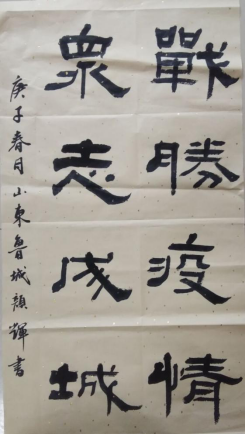 戰勝疫情
衆志成城
庚子春月山東魯城顏輝書